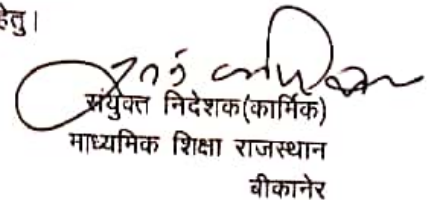 हेतु।
संयुक्त निदेशक(कार्मिक)
माध्यमिक शिक्षा राजस्थान
बीकानेर